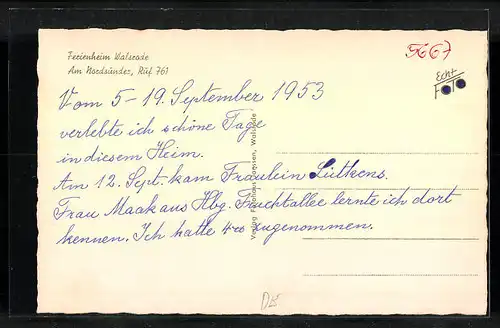 Ferienheim Walsrode
Am Nordsünder, Ruf 761
K67
Echt
Foto
Vom 5-19. September 1953
verlebte ich schöne Tage
in diesem Heim.
Am 12. Sept. kam Fräulein Lütkens.
Frau Maak aus Hbg. Fruchtallee lernte ich dort
kennen. Ich hatte 4 zugenommen.
Verlag Walsrode